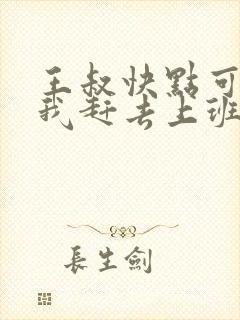 王叔快點可
我赶去上班
長生劍